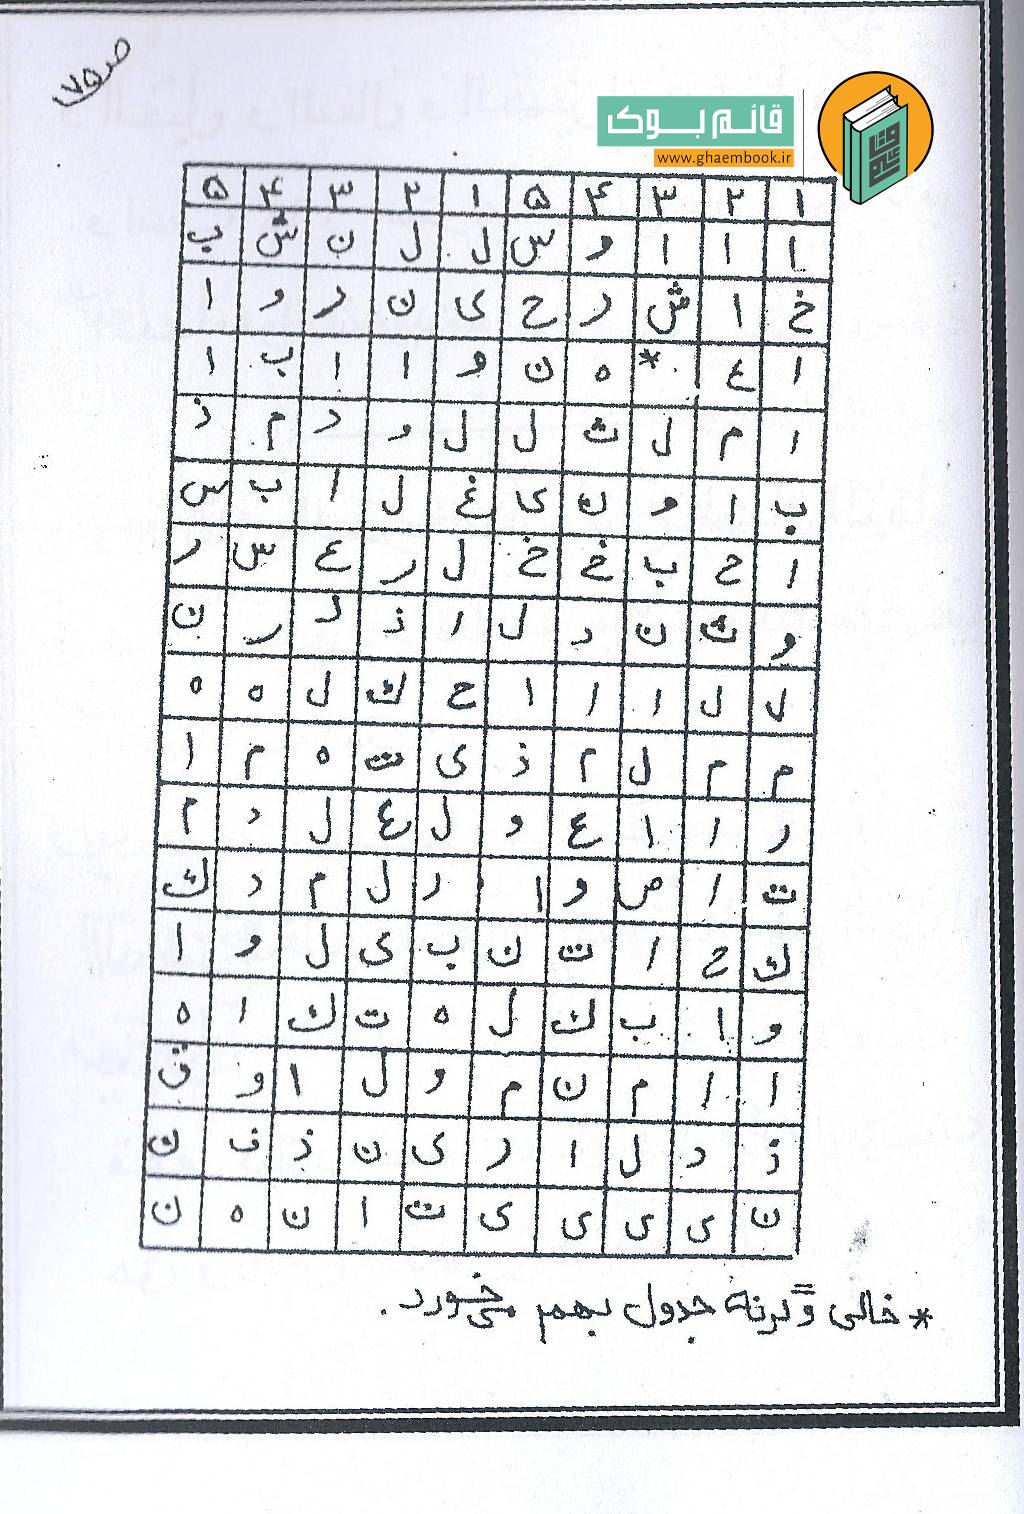 ص ۷۵
قائم بوک
www.ghaembook.ir
۱ ۲ ۳ ۴ ۵ ۱ ۲ ۳ ۴ ۵
ا ا ا و س ل ل ن ش ب
خ ا ش ر ح ی ن ر و ا
ا ع * ه ن و ا ا ب ا
ا م ل ث ل ل و د م ذ
ب ا و ن ی غ ل ا ب س
ا ح ب خ خ ل ر ع س ر
و ث ن د ل ا ذ د ر ن
ل ل ا ا ا ح ك ل ه ه
م م ل م ذ ی ت ه م ا
ر ا ا ع و ل ع ل د م
ت ا ص و ا ر ل م د ك
ك ح ا ت ن ب ی ل و ا
و ا ب ك ل ه ت ك ا ه
ا ا م ن م و ل ا و ق
ذ د ل ا ر ی ن ذ ف ك
ن ی ی ی ی ت ا ن ه ن
* خالی وگرنه جدول بهم میخورد.